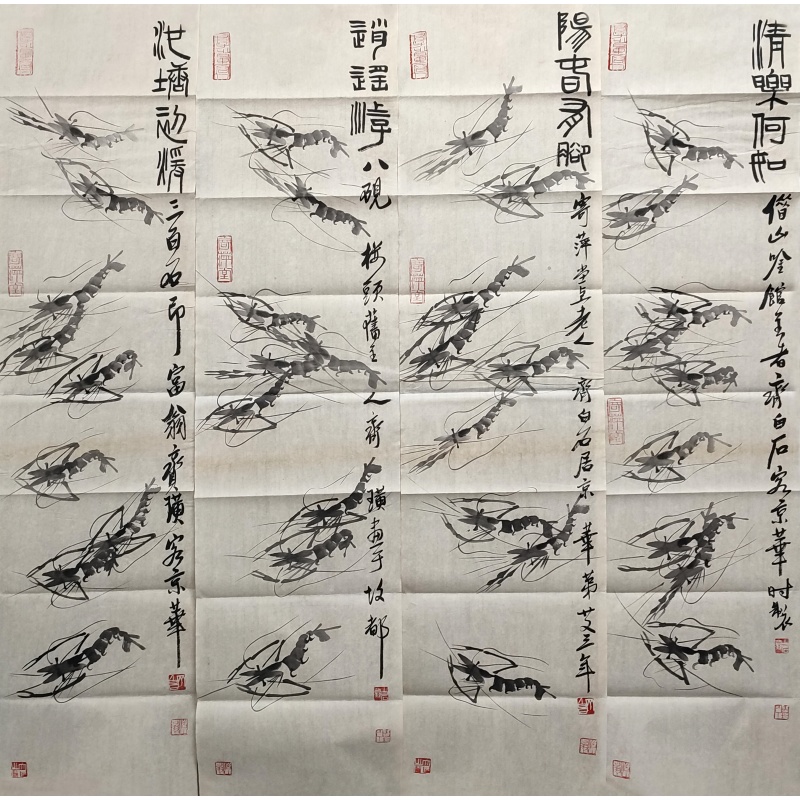 清樂何如
借山唫館主者齊白石客京華时製
陽春有腳
寄萍堂上老人齊白石居京華第廿又三年
逍遙游
八硯樓頭舊主人齊璜畫于故都
池塘初暖
三百石印富翁齊璜客京華